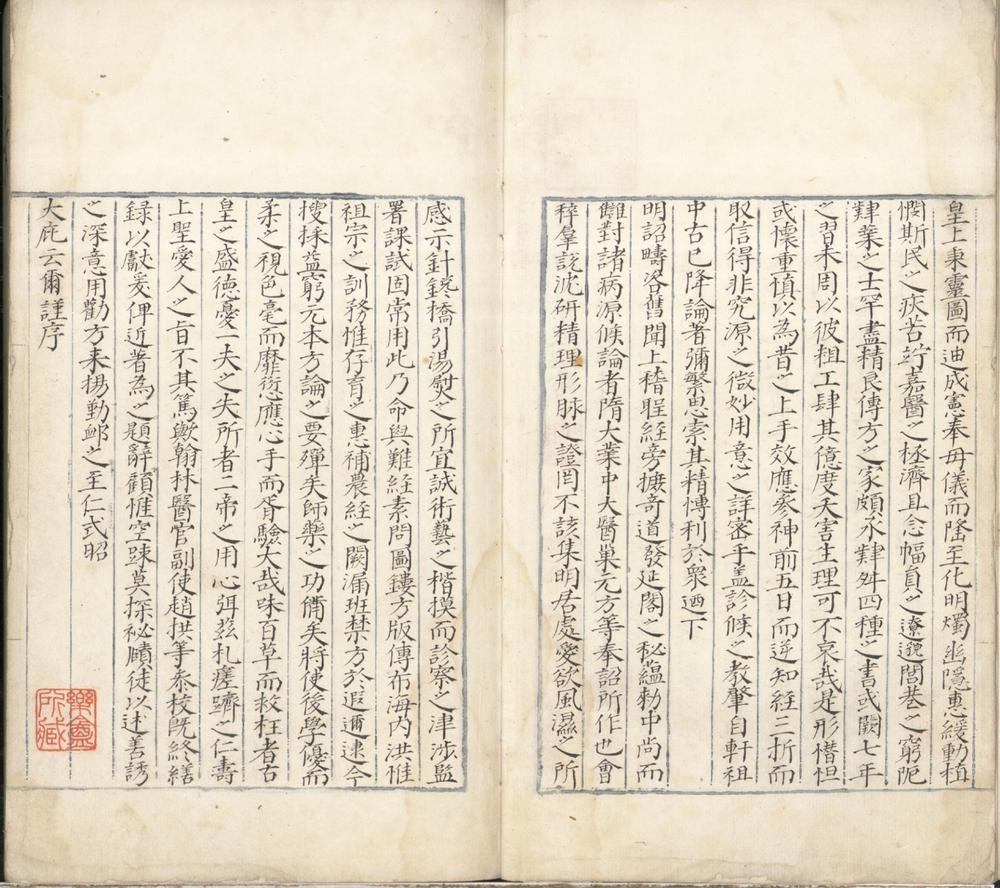 皇上秉靈圖而迪成憲奉母儀而隆至化明燭幽隱惠緩動植
憫斯民之疾苦竚嘉醫之拯濟且念幅員之遼邈閭巷之窮阨
肄業之士罕盡精良傳方之家頗承肄舛四種之書或闕七年
之習未周以彼粗工肆其億度夭害生理可不哀哉是形憯怛
或懷重慎以為昔之上手效應參神前五日而逆知經三折而
取信得非究源之微妙用意之詳密乎盖診候之教肇自軒祖
中古已降論著彌繁思索其精博利於衆迺下
明詔疇咨舊聞上稽聖經旁摭竒道發延閣之秘藴勅中尚而
讎對諸病源候論者隋大業中大醫巢元方等奉詔所作也會
稡羣說沈研精理形脉之證罔不該集明居處愛欲風濕之所
感示針鐃橋引湯熨之所宜誠術藝之楷摸而診察之津涉監
署課試固常用此乃命與難經素問圖鏤方版傳布海内洪惟
祖宗之訓務惟存育之惠補農經之闕漏班禁方於遐邇逮今
搜採益窮元本方論之要殫矣師藥之功備矣將使後學優而
柔之視色毫而靡愆應心手而胥驗大哉味百草而救枉者古
皇之盛德憂一夫之失所者二帝之用心弭兹札瘥躋之仁壽
上聖愛人之旨不其篤歟翰林醫官副使趙拱等叅校旣終繕
録以獻爰俾近著為之題辭顧惟空踈莫探秘賾徒以述善誘
之深意用勸方来揚勤䘏之至仁式昭
大庇云爾謹序
樂盦
所藏